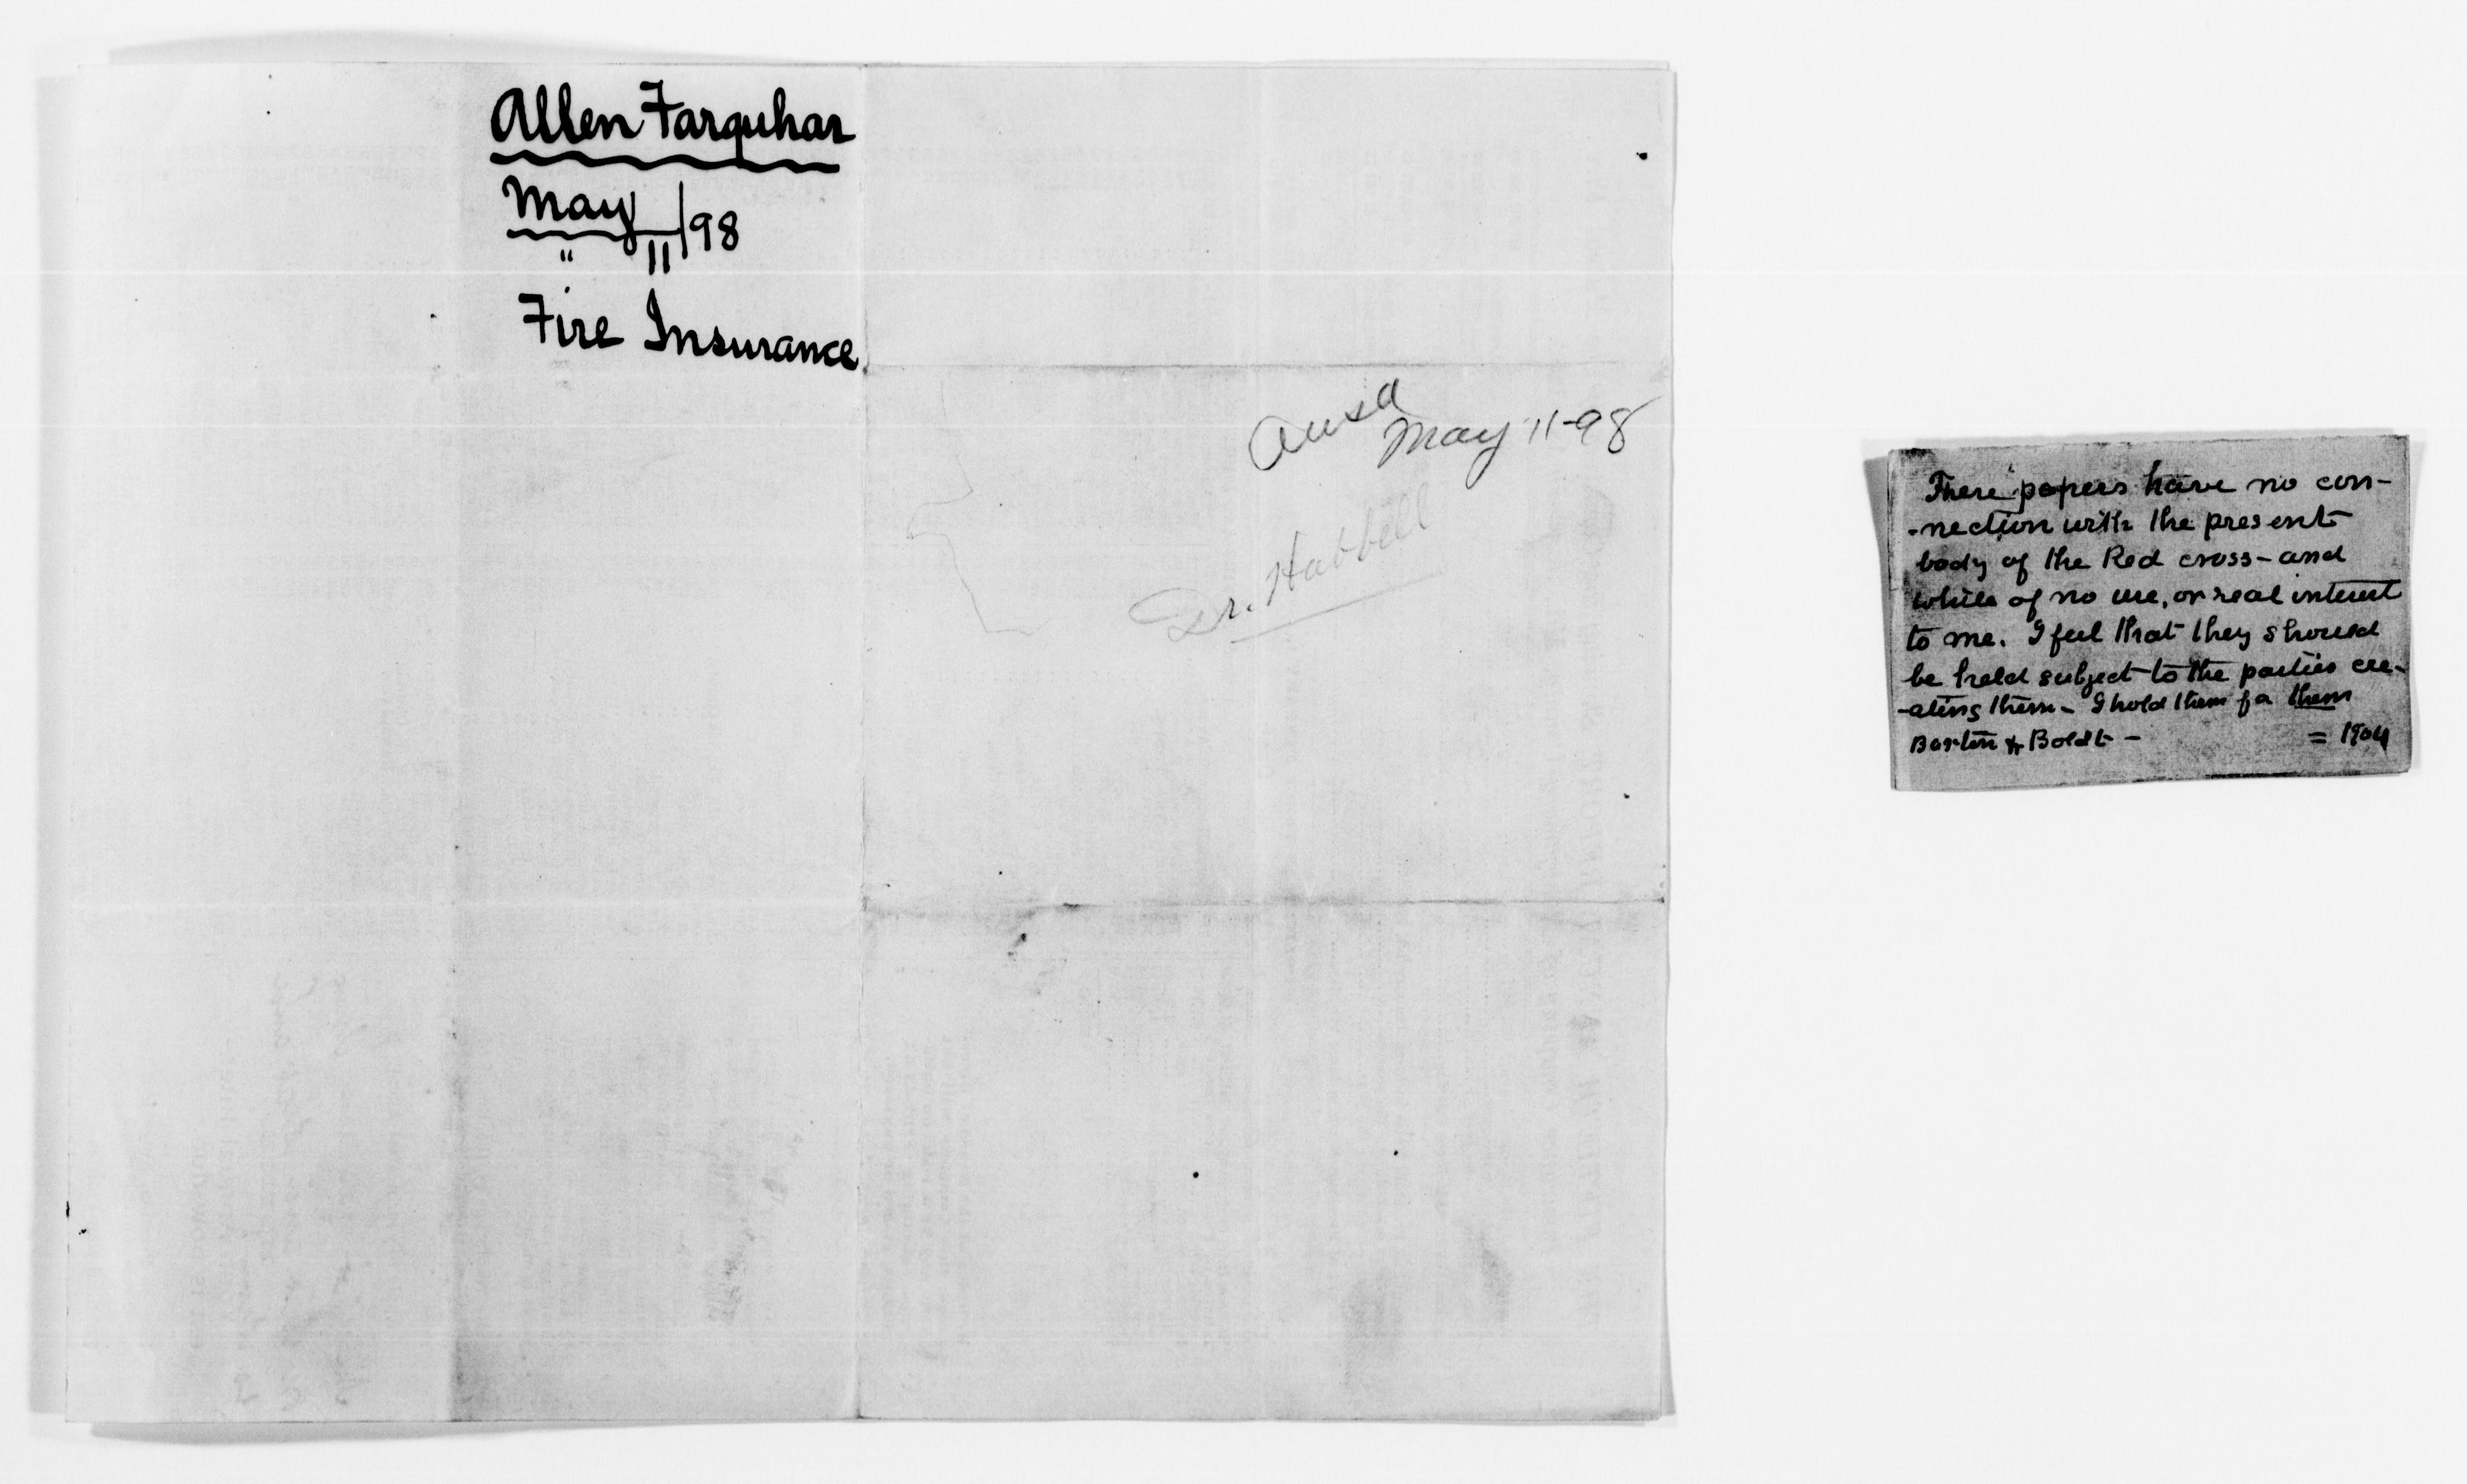 Allen Farquhar
May /98
" 11
Fire Insurance
Ansd
May 11-98
Dr. Hubbell
These papers have no con-
-nection with the present
body of the Red cross - and
while of no use, or real interest
to me. I feel that they should
be held subject to the parties cre-
-ating them - I hold them for them
Barton & Boldt -
= 1904